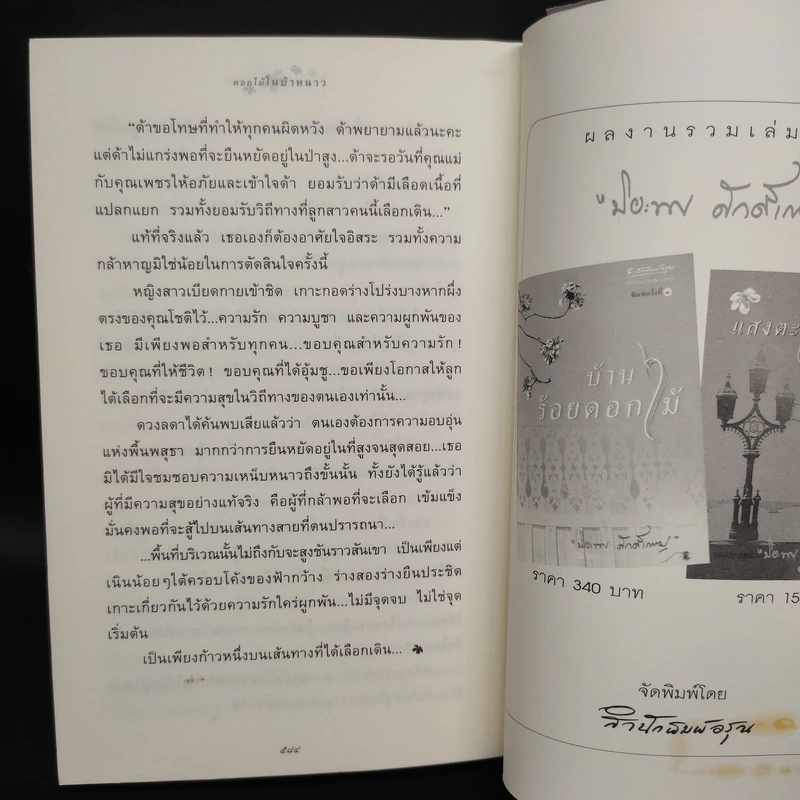 ดอกไม้ในป่าหนาว
“ด้าขอโทษที่ทำให้ทุกคนผิดหวัง ด้าพยายามแล้วนะคะ
แต่ด้าไม่แกร่งพอที่จะยืนหยัดอยู่ในป่าสูง...ด้าจะรอวันที่คุณแม่
กับคุณเพชรให้อภัยและเข้าใจด้า ยอมรับว่าด้ามีเลือดเนื้อที่
แปลกแยก รวมทั้งยอมรับวิถีทางที่ลูกสาวคนนี้เลือกเดิน...”
แท้ที่จริงแล้ว เธอเองก็ต้องอาศัยใจอิสระ รวมทั้งความ
กล้าหาญมิใช่น้อยในการตัดสินใจครั้งนี้
หญิงสาวเบียดกายเข้าชิด เกาะกอดร่างโปร่งบางหากผึ่ง
ตรงของคุณโชติไว้...ความรัก ความบูชา และความผูกพันของ
เธอ มีเพียงพอสำหรับทุกคน...ขอบคุณสำหรับความรัก!
ขอบคุณที่ให้ชีวิต! ขอบคุณที่ได้อุ้มชู...ขอเพียงโอกาสให้ลูก
ได้เลือกที่จะมีความสุขในวิถีทางของตนเองเท่านั้น...
ดวงลดาได้ค้นพบเสียแล้วว่า ตนเองต้องการความอบอุ่น
แห่งพื้นพสุธา มากกว่าการยืนหยัดอยู่ในที่สูงจนสุดสอย...เธอ
มิได้มีใจชมชอบความเหน็บหนาวถึงขั้นนั้น ทั้งยังได้รู้แล้วว่า
ผู้ที่มีความสุขอย่างแท้จริง คือผู้ที่กล้าพอที่จะเลือก เข้มแข็ง
มั่นคงพอที่จะสู้ไปบนเส้นทางสายที่ตนปรารถนา...
...พื้นที่บริเวณนั้นไม่ถึงกับจะสูงชันราวสันเขา เป็นเพียงแต่
เนินน้อยๆใต้ครอบโค้งของฟ้ากว้าง ร่างสองร่างยืนประชิด
เกาะเกี่ยวกันไว้ด้วยความรักใคร่ผูกพัน...ไม่มีจุดจบ ไม่ใช่จุด
เริ่มต้น
เป็นเพียงก้าวหนึ่งบนเส้นทางที่ได้เลือกเดิน...
๕๘๔
ผลงานรวมเล่ม
"ปิยะพร ศักดิ์เกษม
พิมพ์ครั้งที่
บ้าน
ร้อยดอกไม้
"ปิยะพร ศักดิ์เกษม"
ราคา 340 บาท
แสงตะ
"ปิยะพร ศักดิ์
ราคา 15
จัดพิมพ์โดย
สำนักพิมพ์อรุณ